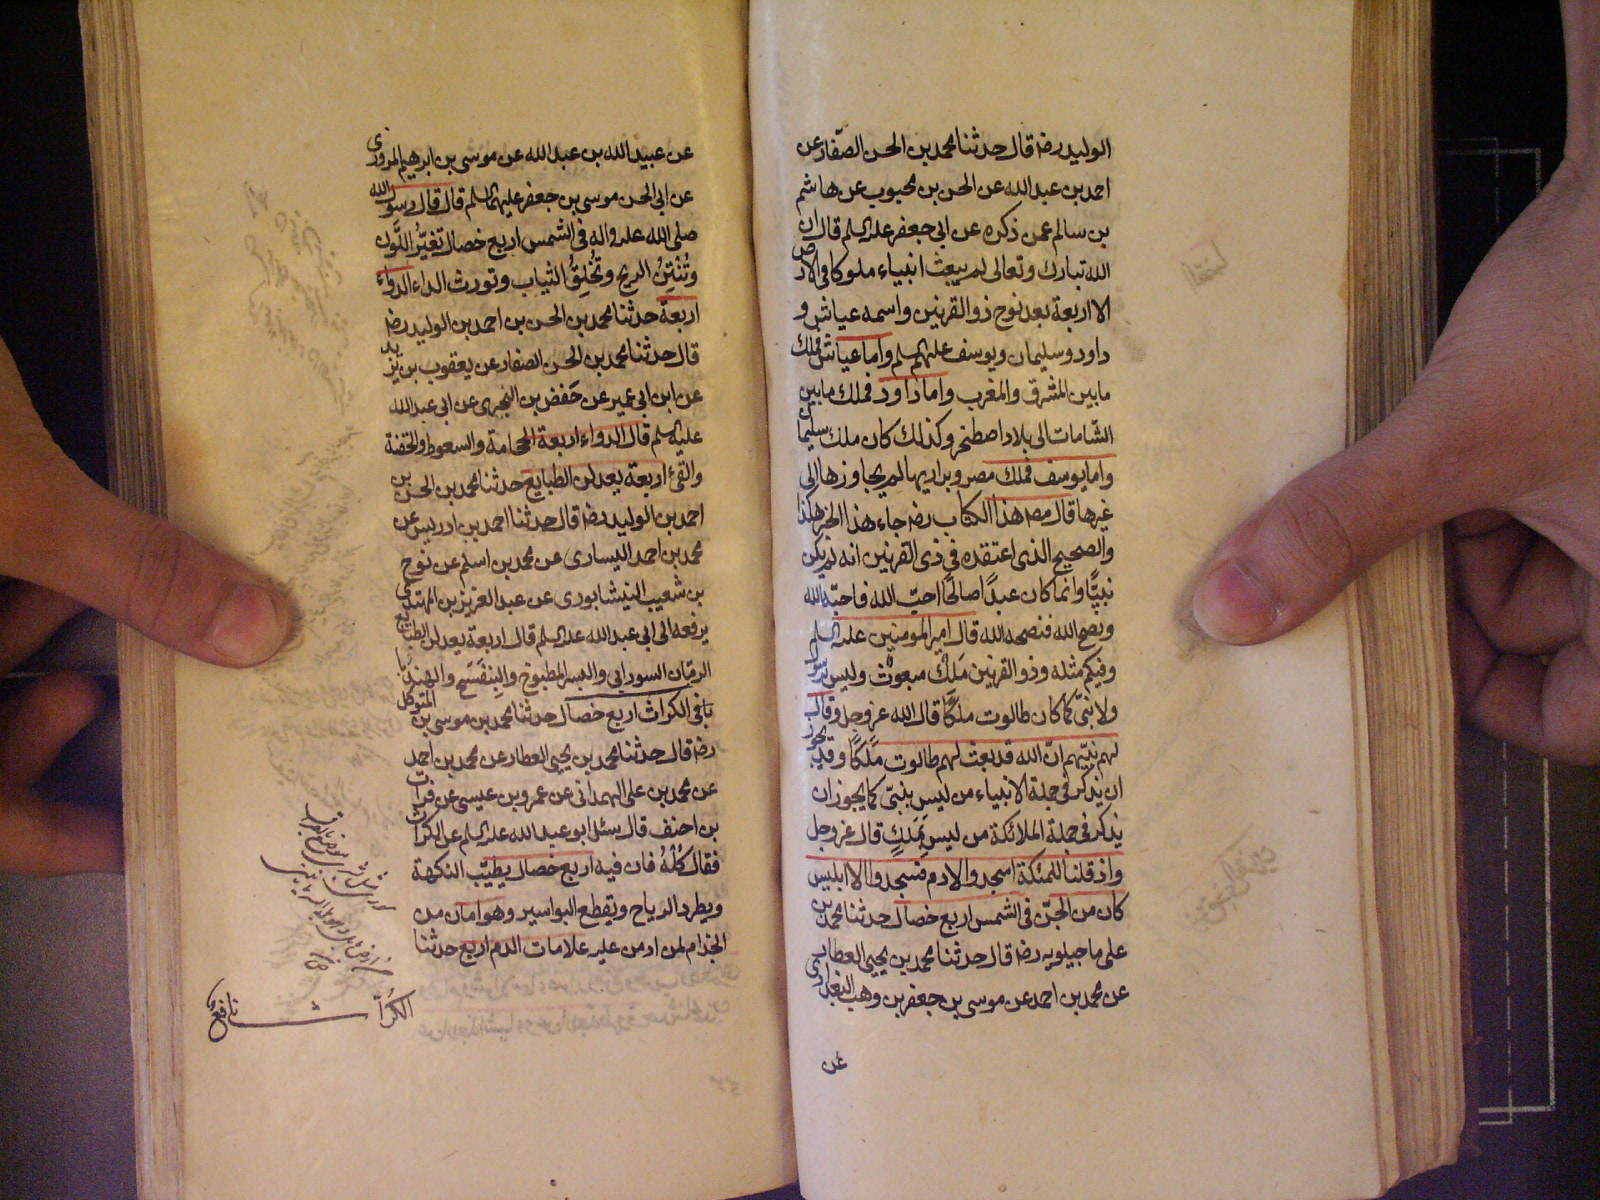 الوليد رضه قال حدثنا محمد بن الحسن الصفار عن
احمد بن عبد الله عن الحسن بن محبوب عن هاشم
بن سالم عمن ذكره عن ابي جعفر عليه السلم قال ان
الله تبارك وتعالى لم يبعث انبياء ملوكا في الارض
الا اربعة بعد نوح ذو القرنين واسمه عياش و
داود وسليمان ويوسف عليهم السلم واما عياش فملك
ما بين المشرق والمغرب واما داود فملك ما بين
الشامات الى بلاد اصطخر وكذلك كان ملك سليمان
واما يوسف فملك مصر وبراريها لم يجاوزها الى
غيرها قال مصه هذا الكتاب رضه جاء هذا الخبر هكذا
والصحيح الذى اعتقده في ذى القرنين انه لم يكن
نبيًّا وانما كان عبدًا صالحًا احبّ الله فاحبّه الله
ونصح الله فنصحه الله قال امير المؤمنين عليه السلم
وفيكم مثله وذو القرنين مَلك مبعوث وليس برسول
ولا نبّى كما كان طالوت ملكًا قال الله عز وجل وقال
لهم نبيّهم انّ الله قد بعث لهم طالوت مَلكًا وقد يجوز
ان يذكر في جملة الانبياء من ليس بنبّى كما يجوز ان
يذكر في جملة الملائكة من ليس بمَلكٍ قال عز وجل
واذ قلنا للملئكة اسجدوا لادم فسجدوا الا ابليس
كان من الجنّ في الشمس اربع خصال حدثنا محمد بن
على ماجيلويه رضه قال حدثنا محمد بن يحيى العطار
عن محمد بن احمد عن موسى بن جعفر بن وهب البغدادى
عن
عن عبيد الله بن عبد الله عن موسى بن ابرهيم المروزى
عن ابى الحسن موسى بن جعفر عليهما السلم قال قال رسول الله
صلى الله عليه واله في الشمس اربع خصال تغيّرُ اللّون
وتُنْتِنُ الريح وتُخْلِقُ الثياب وتورث الداء الدواء
اربعة حدثنا محمد بن الحسن بن احمد بن الوليد رضه
قال حدثنا محمد بن الحسن الصفار عن يعقوب بن يزيد
عن ابن ابى عمير عن حَفص بن البخترى عن ابى عبد الله
عليه السلم قال الدواء اربعة الحجامة والسعوط والحقنة
والقئ اربعة يعدلن الطبايع حدثنا محمد بن الحسن بن
احمد بن الوليد رضه قال حدثنا احمد بن ادريس عن
محمد بن احمد السيارى عن محمد بن اسلم عن نوح
بن شعيب النيشابورى عن عبد العزيز بن المهتدى
يرفعه الى ابى عبد الله عليه السلم قال اربعة يعدلن الطبايع
الرمّان السورانى والبسر المطبوخ والبنفسج والهندبا
في الكراث اربع خصال حدثنا محمد بن موسى بن المتوكل
رضه قال حدثنا محمد بن يحيى العطار عن محمد بن احمد
عن محمد بن على الهمدانى عن عمرو بن عيسى عن فرات
بن احنف قال سئل ابو عبد الله عليه السلم عن الكراث
فقال كُلْهُ فان فيه اربع خصال يطيّب النكهة
ويطرد الرياح ويقطع البواسير وهو امان من
الجذام لمن ادمن عليه علامات الدم اربع حدثنا
الكرّاث
نافع